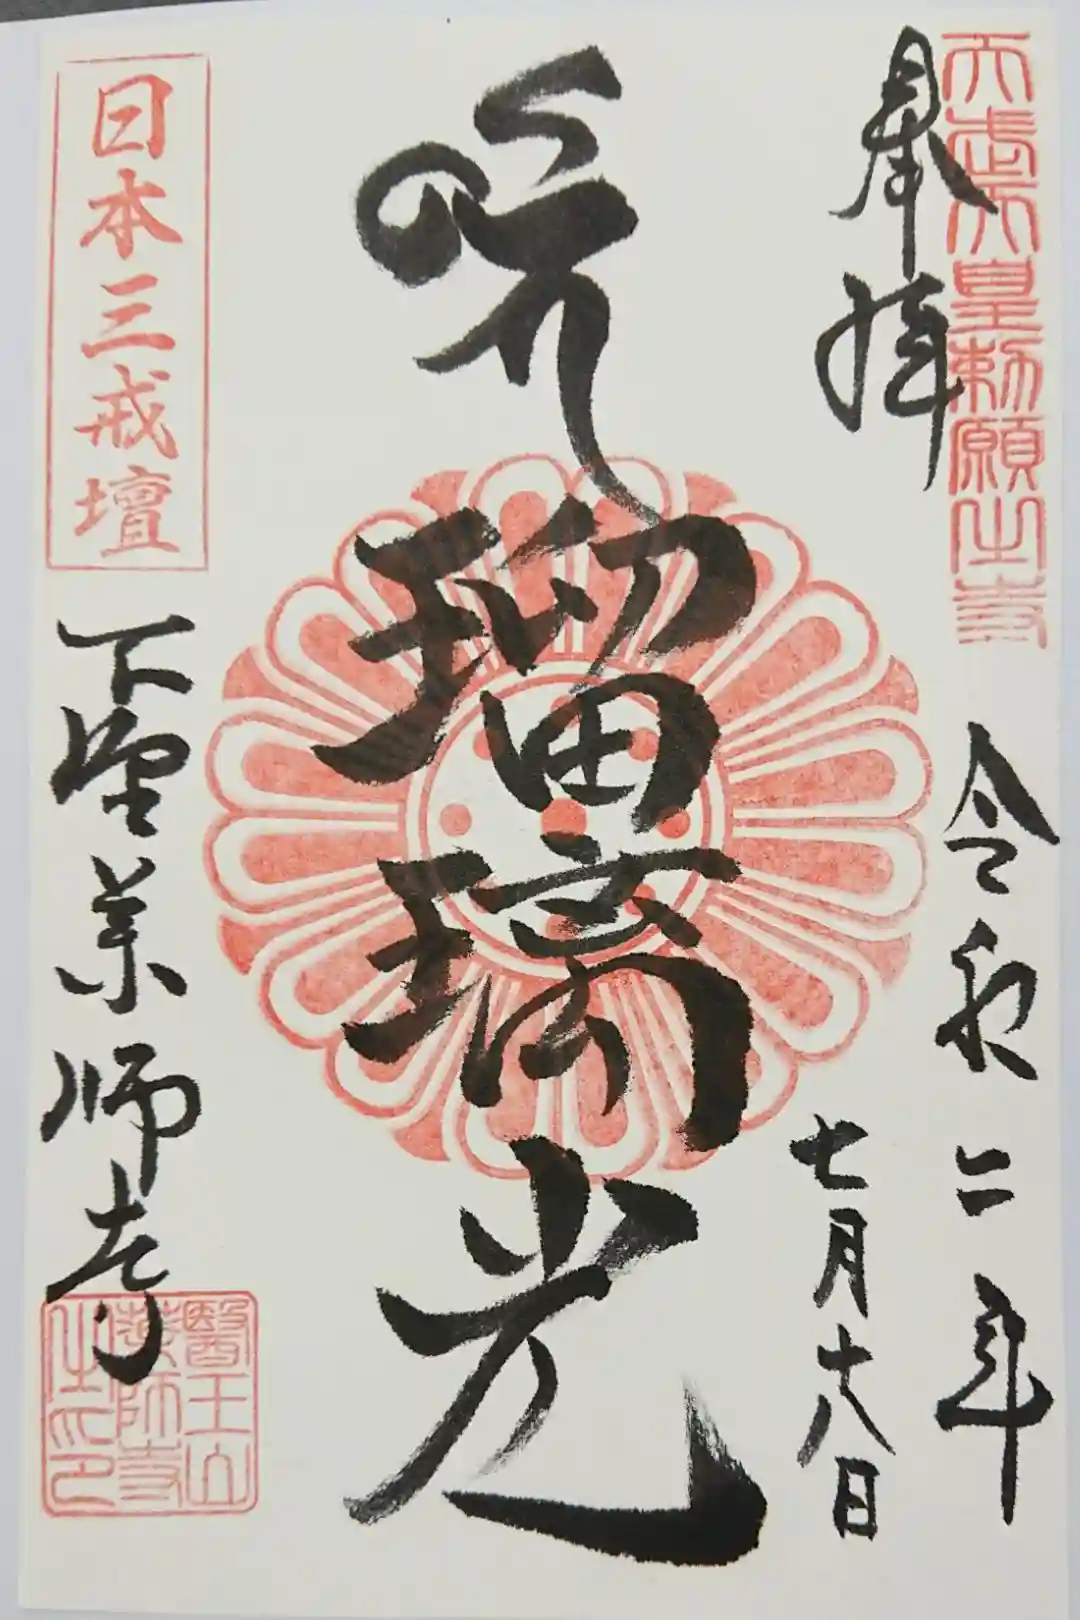 天武天皇勅願之寺
奉拝
令和二年
七月十八日
瑠璃光
日本三戒壇
下野薬師寺
醫王山
薬師寺
之印